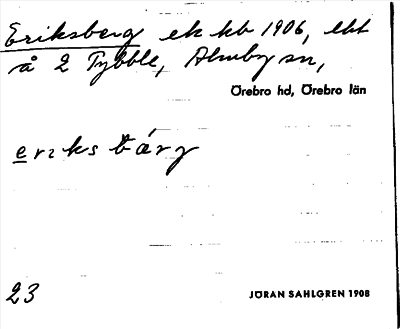 Eriksberg ek kb 1906, ebt
å 2 Tybble, Almby sn,
Örebro hd, Örebro län
eriksbärg
23
JÖRAN SAHLGREN 1908